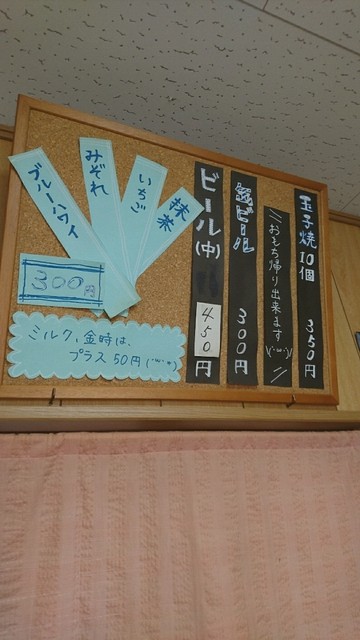 玉子焼10個 350円
\\おもち帰り出来ます\(・ω・)/ //
缶ビール 300円
ビール(中) 450円
抹茶
いちご
みぞれ
ブルーハワイ
300円
ミルク、金時は、
プラス50円(・ω・*)